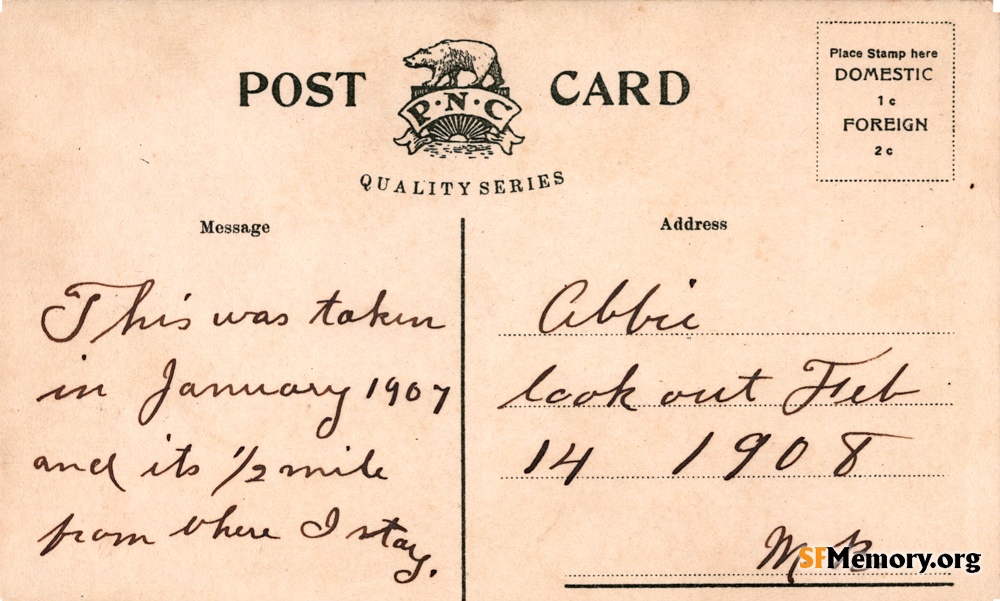 POST CARD
P·N·C
QUALITY SERIES
Place Stamp here
DOMESTIC
1c
FOREIGN
2c
Message
Address
This was taken
in January 1907
and its 1/2 mile
from where I stay.
Abbie
look out Feb
14 1908
M B
SFMemory.org